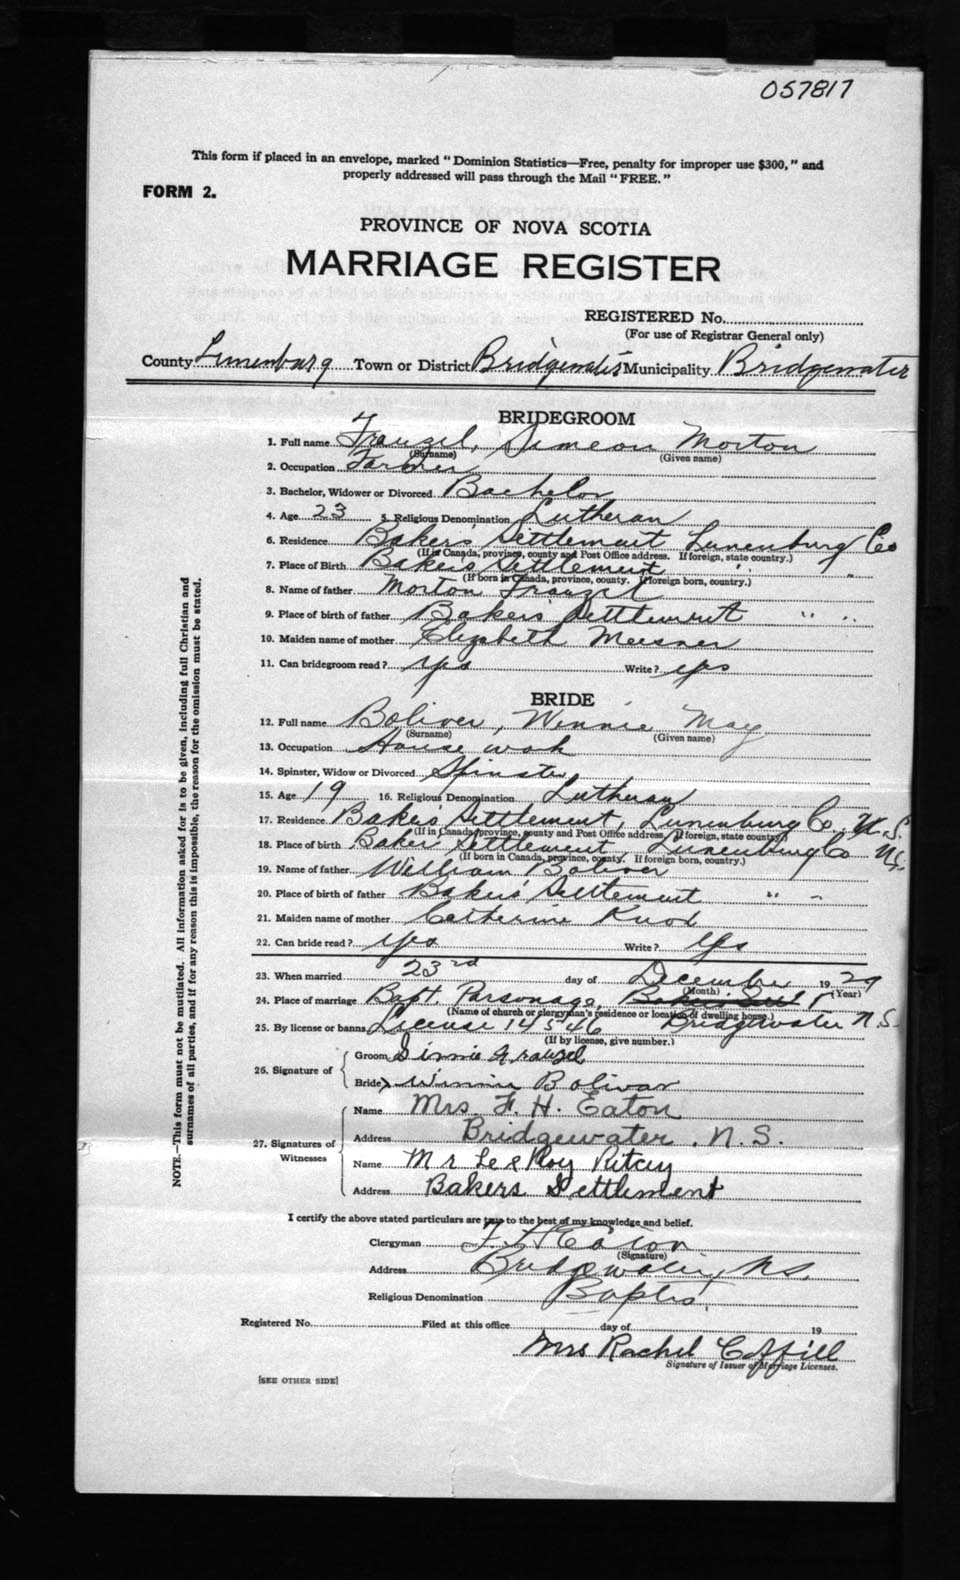 057817
This form if placed in an envelope, marked "Dominion Statistics—Free, penalty for improper use $300," and
properly addressed will pass through the Mail "FREE."
FORM 2.
PROVINCE OF NOVA SCOTIA
MARRIAGE REGISTER
REGISTERED No.
(For use of Registrar General only)
County Lunenburg Town or District Bridgewater Municipality Bridgewater
BRIDEGROOM
1. Full name Frauzel, Simeon Morton
(Surname) (Given name)
2. Occupation Farmer
3. Bachelor, Widower or Divorced Bachelor
4. Age 23 5. Religious Denomination Lutheran
6. Residence Baker's Settlement Lunenburg Co
(If in Canada, province, county and Post Office address. If foreign, state country.)
7. Place of Birth Baker's Settlement " "
(If born in Canada, province, county. If foreign born, country.)
8. Name of father Morton Frauzel
9. Place of birth of father Baker's Settlement " "
10. Maiden name of mother Elizabeth Meisner
11. Can bridegroom read? yes Write? yes
BRIDE
12. Full name Boliver, Winnie May
(Surname) (Given name)
13. Occupation House work
14. Spinster, Widow or Divorced Spinster
15. Age 19 16. Religious Denomination Lutheran
17. Residence Baker's Settlement, Lunenburg Co, N.S.
(If in Canada, province, county and Post Office address. If foreign, state country.)
18. Place of birth Baker Settlement, Lunenburg Co N.S.
(If born in Canada, province, county. If foreign born, country.)
19. Name of father William Boliver
20. Place of birth of father Baker's Settlement " "
21. Maiden name of mother Catherine Knox
22. Can bride read? yes Write? yes
23. When married 23rd day of December 1929
(Month) (Year)
24. Place of marriage Bapt. Parsonage, Bakers Sett
(Name of church or clergyman's residence or location of dwelling house.)
25. By license or banns License 14546 Bridgewater N.S.
(If by license, give number.)
26. Signature of
Groom Simmie Frauzel
Bride Winnie Bolivar
27. Signatures of Witnesses
Name Mrs F. H. Eaton
Address Bridgewater, N.S.
Name Mr Le Roy Ritcey
Address Bakers Settlement
I certify the above stated particulars are true to the best of my knowledge and belief.
Clergyman F H Eaton
(Signature)
Address Bridgewater, N.S.
Religious Denomination Baptist
Registered No. Filed at this office day of 19
Mrs Rachel C
Signature of Issuer of Marriage Licenses.
[SEE OTHER SIDE]
NOTE.—This form must not be mutilated. All information asked for is to be given, including full Christian and
surnames of all parties, and if for any reason this is impossible, the reason for the omission must be stated.